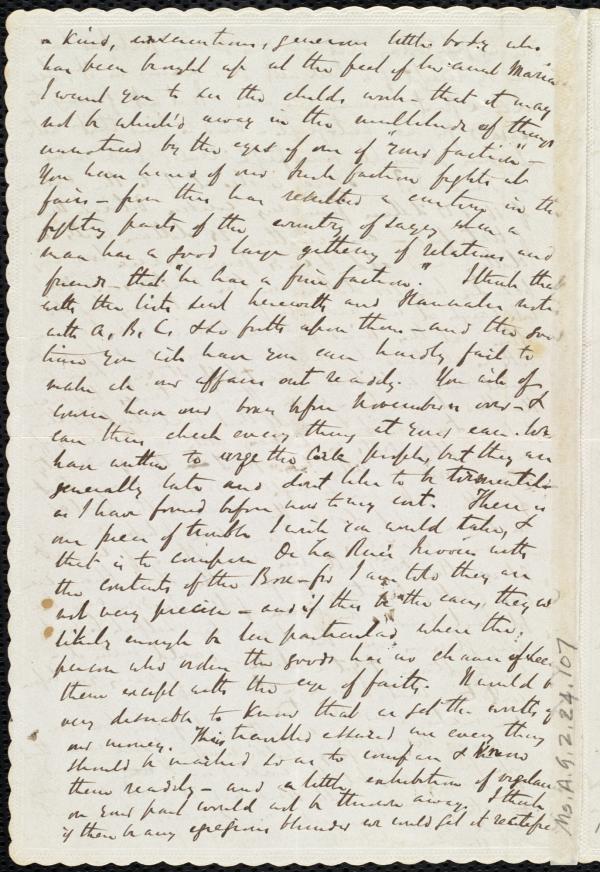 a kind, conscientious, generous little body who
has been brought up at the feet of her aunt Maria
I want you to see the childs work - that it may
not be whisk'd away in the multitude of things
unnoticed by the eyes of one of "your faction" -
You have heard of our Irish faction fights at
fairs - from this has resulted a custom in the
fighting parts of the country of saying when a
man has a good large gathering of relations and
friends - that "he has a fine faction." I think that
with the lists sent herewith and Hannah's notes
with A, B, C, &c put upon them - and the good
time you will have you can hardly fail to
make all our affairs out readily. You will of
course have our boxes before November is over - &
can then check every thing at your ease. We
have written to urge the Cork people, but they are
generally late and don't like to be tormented
as I have found before now to my cost. There is
one piece of trouble I wish you would take, &
that is to compare De La Rue's Invoice with
the contents of the Box - for I am told they are
not very precise - and if this be the case, they are
likely enough to be less particular where the
person who orders the goods has no chance of seeing
them except with the eye of faith. It would be
very desirable to know that we get the worth of
our money. This travelled assured me every thing
should be marked so as to compare & know
them readily - and a little exhibition of vigilance
on your part would not be thrown away. I think
if there be any egregious blunder we could get it rectified
Ms. A. 9. 2. 24. 107